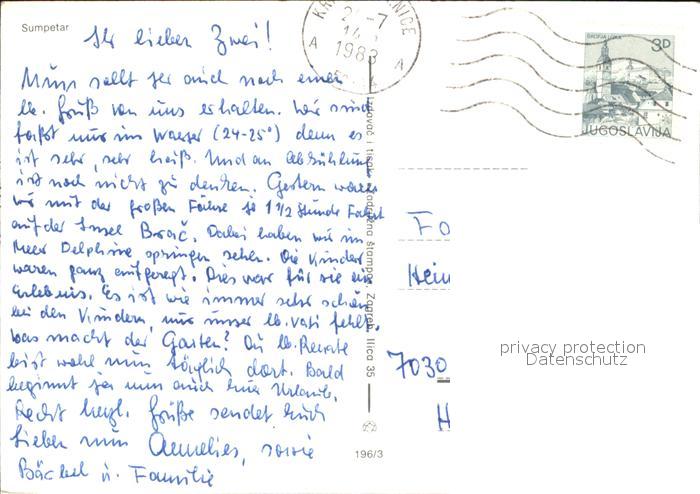 Sumpetar
Ihr lieben Zwei!
Nun sollt ihr auch noch einen
lb. Gruß von uns erhalten. Wir sind
fast nur im Wasser (24-25°) denn es
ist sehr, sehr heiß. Und an Abkühlung
ist noch nicht zu denken. Gestern waren
wir mit der großen Fähre je 1 1/2 Stunde Fahrt
auf der Insel Brač. Dabei haben wir im
Meer Delphine springen sehen. Die Kinder
waren ganz aufgeregt. Dies war für sie ein
Erlebnis. Es ist wie immer sehr schön
bei den Kindern, nur unser lb. Vati fehlt.
Was macht der Garten? Du lb. Renate
bist wohl nun täglich dort. Bald
beginnt ja nun auch Eure Urlaub.
Recht herzl. Grüße sendet Euch
Lieben nun Annelies, sowie
Bärbel u. Familie
24-7
1983
A A
BAŠKA
3D
JUGOSLAVIJA
štampa, Zagreb, Ilica 35
196/3
Fo
Hein
7030
H
privacy protection
Datenschutz